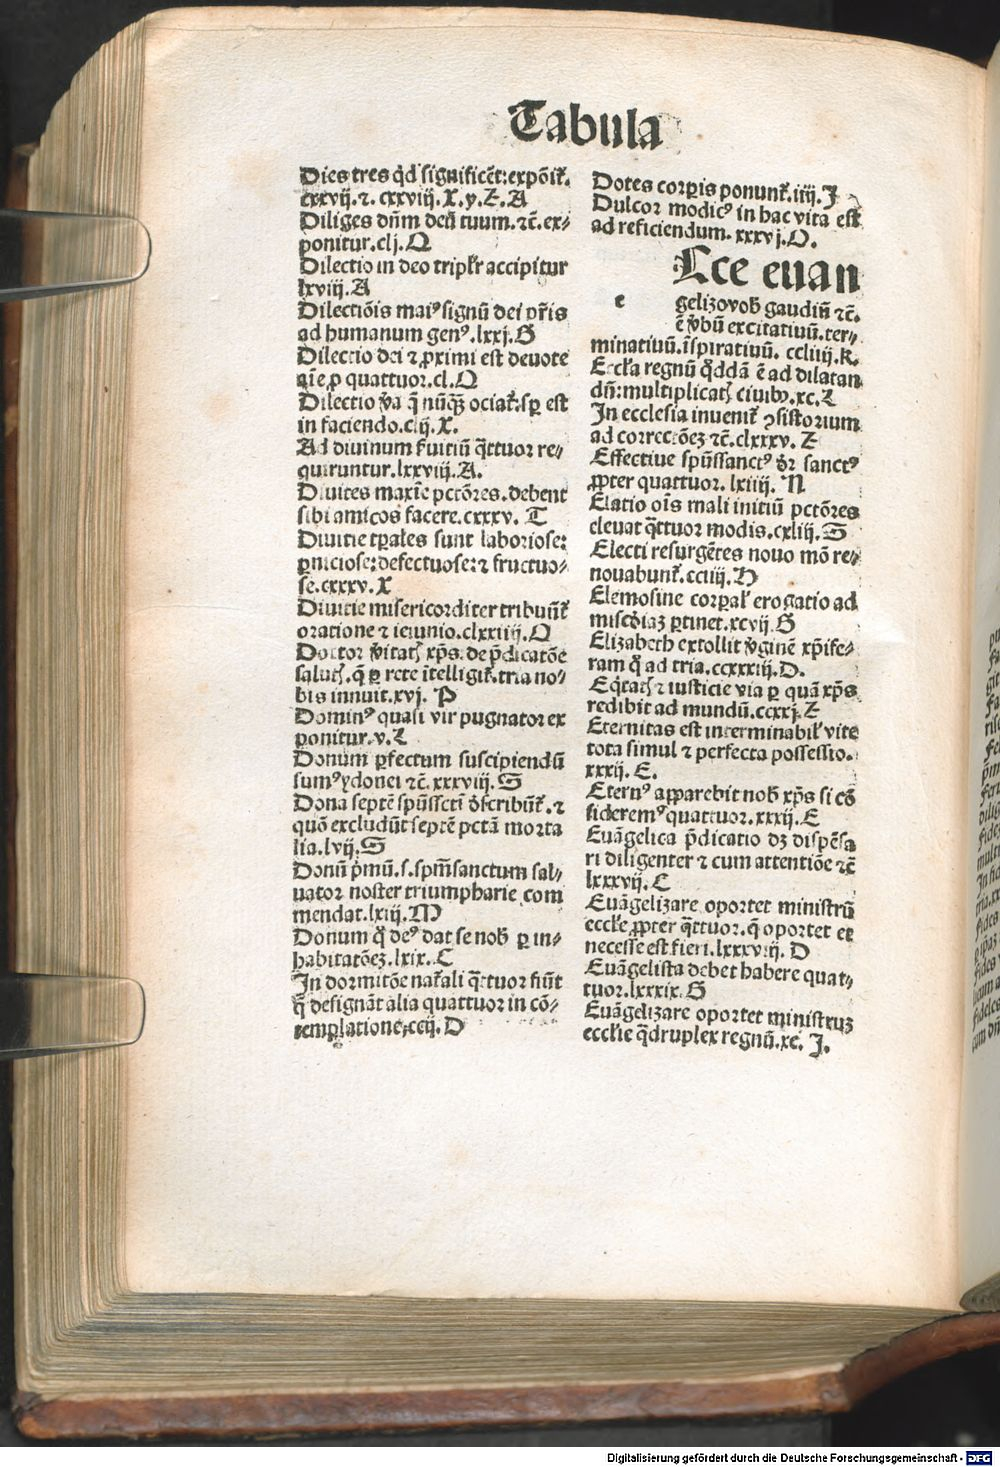 Tabula
Dies tres qd́ significēt: expōit̃.
cxxvij ⁊. cxxviij. X. y. Z. A
Diliges dñm deū tuum. ⁊c̃. ex⸗
ponitur. clj. Q
Dilectio in deo triplr̃ accipitur
lxviij. A
Dilectiōis maiꝰ signū dei pr̃is
ad humanum genꝰ. lxxj. G
Dilectio dei ⁊ ꝓximi est deuote
aīe ꝓ quattuor. cl. Q
Dilectio v̄a q̄ nūqꝫ ociat̃. sꝑ est
in faciendo. clij. X.
Ad diuinum ẜuitiū q̄ttuor re⸗
quiruntur. lxxviij. A.
Diuites maxīe pctōres. debent
sibi amicos facere. cxxxv. T
Diuitie tꝑales sunt laboriose:
ꝑniciose: defectuose: ⁊ fructuo⸗
se. cxxxv. X
Diuitie misericorditer tribuūt̃
oratione ⁊ ieiunio. clxxiiij. Q
Doctor v̄itatꝭ xp̄s. de p̄dicatōe
salutꝭ. q̄ ꝑ rete ītelligit̃. tria no⸗
bis innuit. xvj. P
Dominꝰ quasi vir pugnator ex
ponitur. v. L
Donum ꝑfectum suscipiendū
sumꝰ ydonei ⁊c̃. xxxviij. S
Dona septē sp̄ūssctī describūt̃. ⁊
quō excludūt septē pctā morta
lia. lvij. S
Donū p̄mū. s. sp̄m sanctum sal⸗
uator noster triumpharie com
mendat. lxiij. M
Donum qd́ deꝰ dat se nob̄ ꝑ in⸗
habitatōeꝫ. lxix. C
In dormitōe nat̃ali q̄ttuor fiūt
q̄ designāt alia quattuor in cō⸗
templatione. ccij. D
Dotes corꝑis ponunt̃. iiij. J
Dulcor modicꝰ in hac vita est
ad reficiendum. xxxvj. O.
e
Ecce euan
gelizo vob̄ gaudiū ⁊c̃.
ē v̄bū excitatiuū. ter⸗
minatiuū. īspiratiuū. ccliiij. K.
Eccl̃a regnū qd́dā ē ad dilatan
dū: multiplicatꝭ ciuibꝰ. xc. L
In ecclesia inuenit̃ ꝯsistorium
ad correctōeꝫ ⁊c̃. clxxxv. Z
Effectiue sp̄ūssanctꝰ dr̃ sanctꝰ
ꝓpter quattuor. lxiiij. N
Elatio oīs mali initiū pctōres
eleuat q̄ttuor modis. cxliij. S
Electi resurgētes nouo mō re⸗
nouabunt̃. cciiij. H
Elemosine corꝑal̃ erogatio ad
mīaꝫ ꝑtinet. xcvij. G
Elizabeth extollit v̄ginē xp̄ife⸗
ram qd́ ad tria. ccxxxiij. D.
Eq̄tatꝭ ⁊ iusticie via ꝑ quā xp̄s
redibit ad mundū. ccxxj. Z
Eternitas est interminabil̃ vite
tota simul ⁊ perfecta possessio.
xxxij. E.
Eternꝰ apparebit nob̄ xp̄s si cō
sideremꝰ quattuor. xxxij. E
Euāgelica p̄dicatio dꝫ dispēsa
ri diligenter ⁊ cum attentiōe ⁊c̃
lxxxvij. C
Euāgelizare oportet ministrū
eccl̃ie ꝓpter q̄ttuor. q̄ oportet et
necesse est fieri. lxxxviij. D
Euāgelista debet habere quat⸗
tuor. lxxxix. G
Euāgelizare oportet ministruꝫ
eccl̃ie q̄druplex regnū. xc. J.
Digitalisierung gefördert durch die Deutsche Forschungsgemeinschaft - DFG